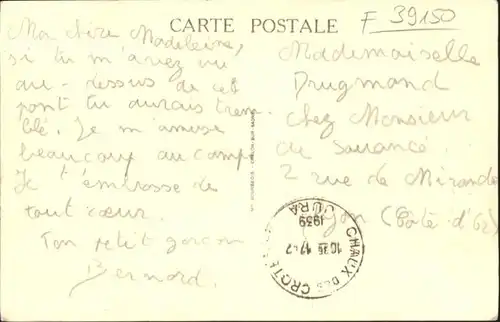 CARTE POSTALE
F 39150
Ma chère Madeleine,
si tu m'avez vu
au-dessus de cet
pont tu aurais trem
blé. Je m'amuse
beaucoup au camp
Je t'embrasse de
tout cœur.
Ton petit garçon
Bernard.
Mademoiselle
Drugmand
chez Monsieur
de Sauance
2 rue de Mirande
Dijon (Côte d'Or)
CHAUX DES CROTE
1035 17-7
1939
JURA